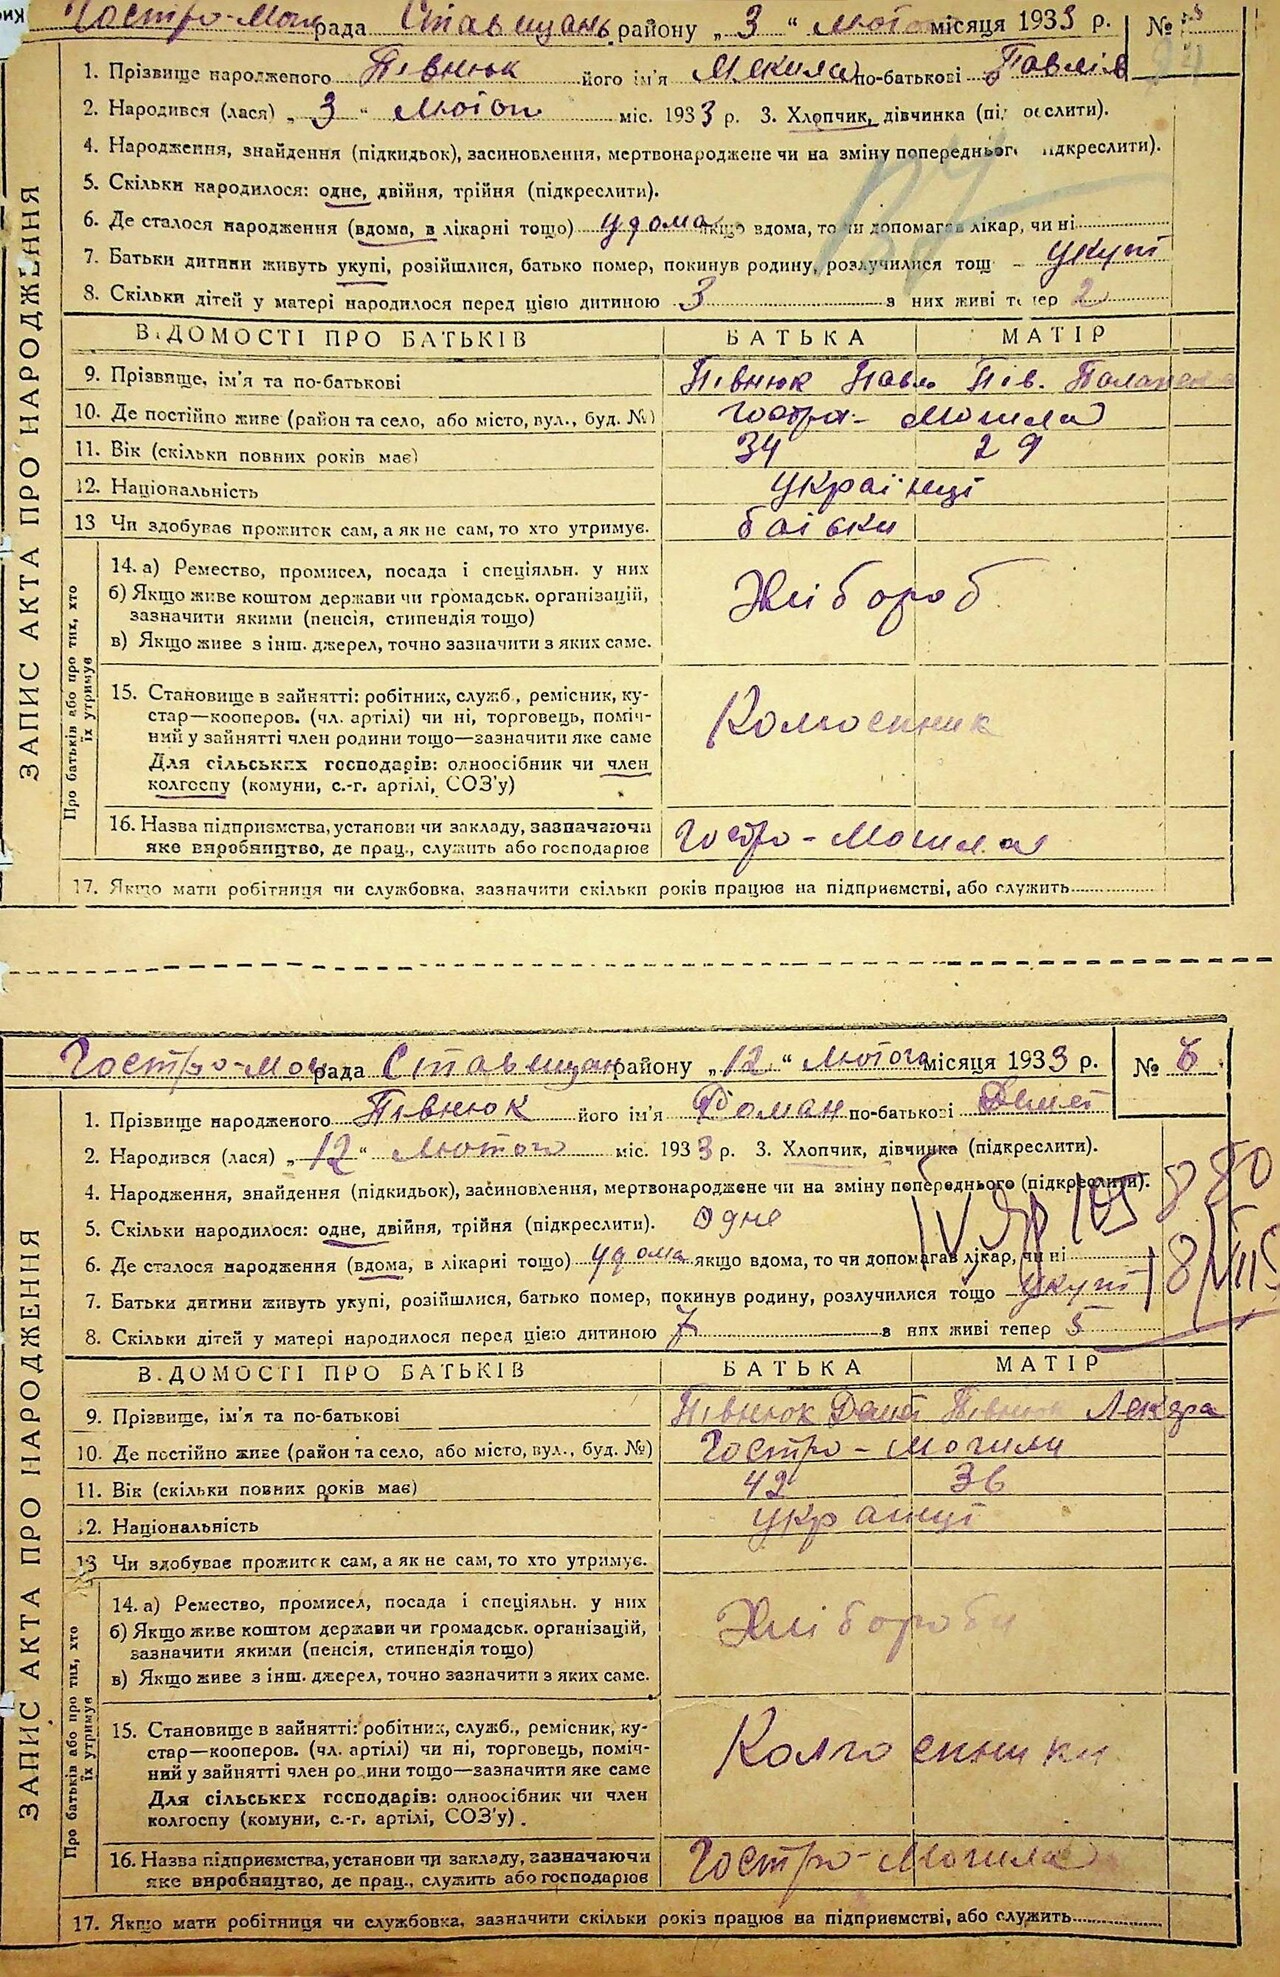 Гостро-Мог рада Ставищань району „ 3 “ Лютого місяця 1933 р. №
1. Прізвище народженого Півнюк його ім'я Микила по-батькові Павлів
2. Народився (лася) „ 3 “ Лютого міс. 1933 р. 3. Хлопчик, дівчинка (під оеслити).
4. Народження, знайдення (підкидьок), засиновлення, мертвонароджене чи на зміну попереднього підкреслити).
5. Скільки народилося: одне, двійня, трійня (підкреслити).
6. Де сталося народження (вдома, в лікарні тощо) удома якщо вдома, то чи допомагав лікар, чи ні
7. Батьки дитини живуть укупі, розійшлися, батько помер, покинув родину, розлучилися тощ укупі
8. Скільки дітей у матері народилося перед цією дитиною 3 з них живі тепер 2
ВІДОМОСТІ ПРО БАТЬКІВ БАТЬКА МАТІР
9. Прізвище, ім'я та по-батькові Півнюк Павло Пів. Палажка
10. Де постійно живе (район та село, або місто, вул., буд. №) Гостра- Могила
11. Вік (скільки повних років має) 34 29
12. Національність українці
13 Чи здобуває прожиток сам, а як не сам, то хто утримує. батьки
14. а) Ремество, промисел, посада і спеціяльн. у них
б) Якщо живе коштом держави чи громадськ. організацій,
зазначити якими (пенсія, стипендія тощо) Хлібороб
в) Якщо живе з інш. джерел, точно зазначити з яких саме.
15. Становище в зайнятті: робітник, служб., ремісник, ку-
стар—кооперов. (чл. артілі) чи ні, торговець, поміч-
ний у зайнятті член родини тощо—зазначити яке саме Колгоспник
Для сільських господарів: одноосібник чи член
колгоспу (комуни, с.-г. артілі, СОЗ'у)
16. Назва підприємства, установи чи закладу, зазначаючи
яке виробництво, де прац., служить або господарює Гостро-Могила
17. Якщо мати робітниця чи службовка, зазначити скільки років працює на підприємстві, або служить
ЗАПИС АКТА ПРО НАРОДЖЕННЯ
Про батьків або про тих, хто
їх утримує
Гостро-Мог рада Ставищан району „ 12 “ Лютого місяця 1933 р. № 6
1. Прізвище народженого Півнюк його ім'я Роман по-батькові Демет
2. Народився (лася) „ 12 “ Лютого міс. 1933 р. 3. Хлопчик, дівчинка (підкреслити).
4. Народження, знайдення (підкидьок), засиновлення, мертвонароджене чи на зміну попереднього (підкреслити).
5. Скільки народилося: одне, двійня, трійня (підкреслити). Одне
6. Де сталося народження (вдома, в лікарні тощо) удома якщо вдома, то чи допомагав лікар, чи ні
7. Батьки дитини живуть укупі, розійшлися, батько помер, покинув родину, розлучилися тощо укупі
8. Скільки дітей у матері народилося перед цією дитиною 7 з них живі тепер 5
ВІДОМОСТІ ПРО БАТЬКІВ БАТЬКА МАТІР
9. Прізвище, ім'я та по-батькові Півнюк Демет Півнюк Лекера
10. Де постійно живе (район та село, або місто, вул., буд. №) Гостро-могили
11. Вік (скільки повних років має) 42 36
12. Національність українці
13 Чи здобуває прожиток сам, а як не сам, то хто утримує.
14. а) Ремество, промисел, посада і спеціяльн. у них
б) Якщо живе коштом держави чи громадськ. організацій, Хлібороби
зазначити якими (пенсія, стипендія тощо)
в) Якщо живе з інш. джерел, точно зазначити з яких саме.
15. Становище в зайнятті: робітник, служб., ремісник, ку-
стар—кооперов. (чл. артілі) чи ні, торговець, поміч- Колгоспники
ний у зайнятті член родини тощо—зазначити яке саме
Для сільських господарів: одноосібник чи член
колгоспу (комуни, с.-г. артілі, СОЗ'у).
16. Назва підприємства, установи чи закладу, зазначаючи
яке виробництво, де прац., служить або господарює Гостро-Могила
17. Якщо мати робітниця чи службовка, зазначити скільки років працює на підприємстві, або служить
ЗАПИС АКТА ПРО НАРОДЖЕННЯ
Про батьків або про тих, хто
їх утримує